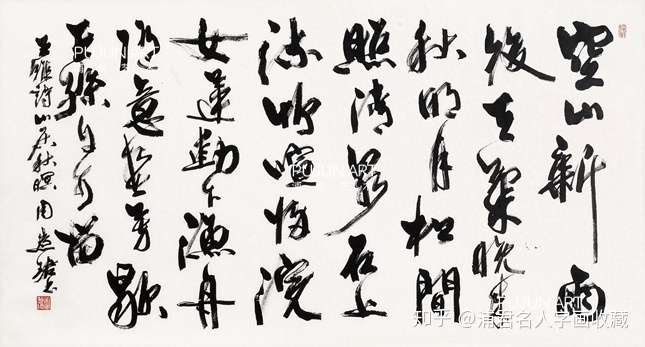 空山新雨
後天氣晚来
秋明月松間
照清泉石上
流竹喧歸浣
女蓮動下漁舟
隨意春芳歇
王孫自可留
王維詩山居秋暝 周慧珺书
PUJUN ART
PUJUN ART
PUJUN ART
PUJUN ART
知乎 @浦君名人字画收藏